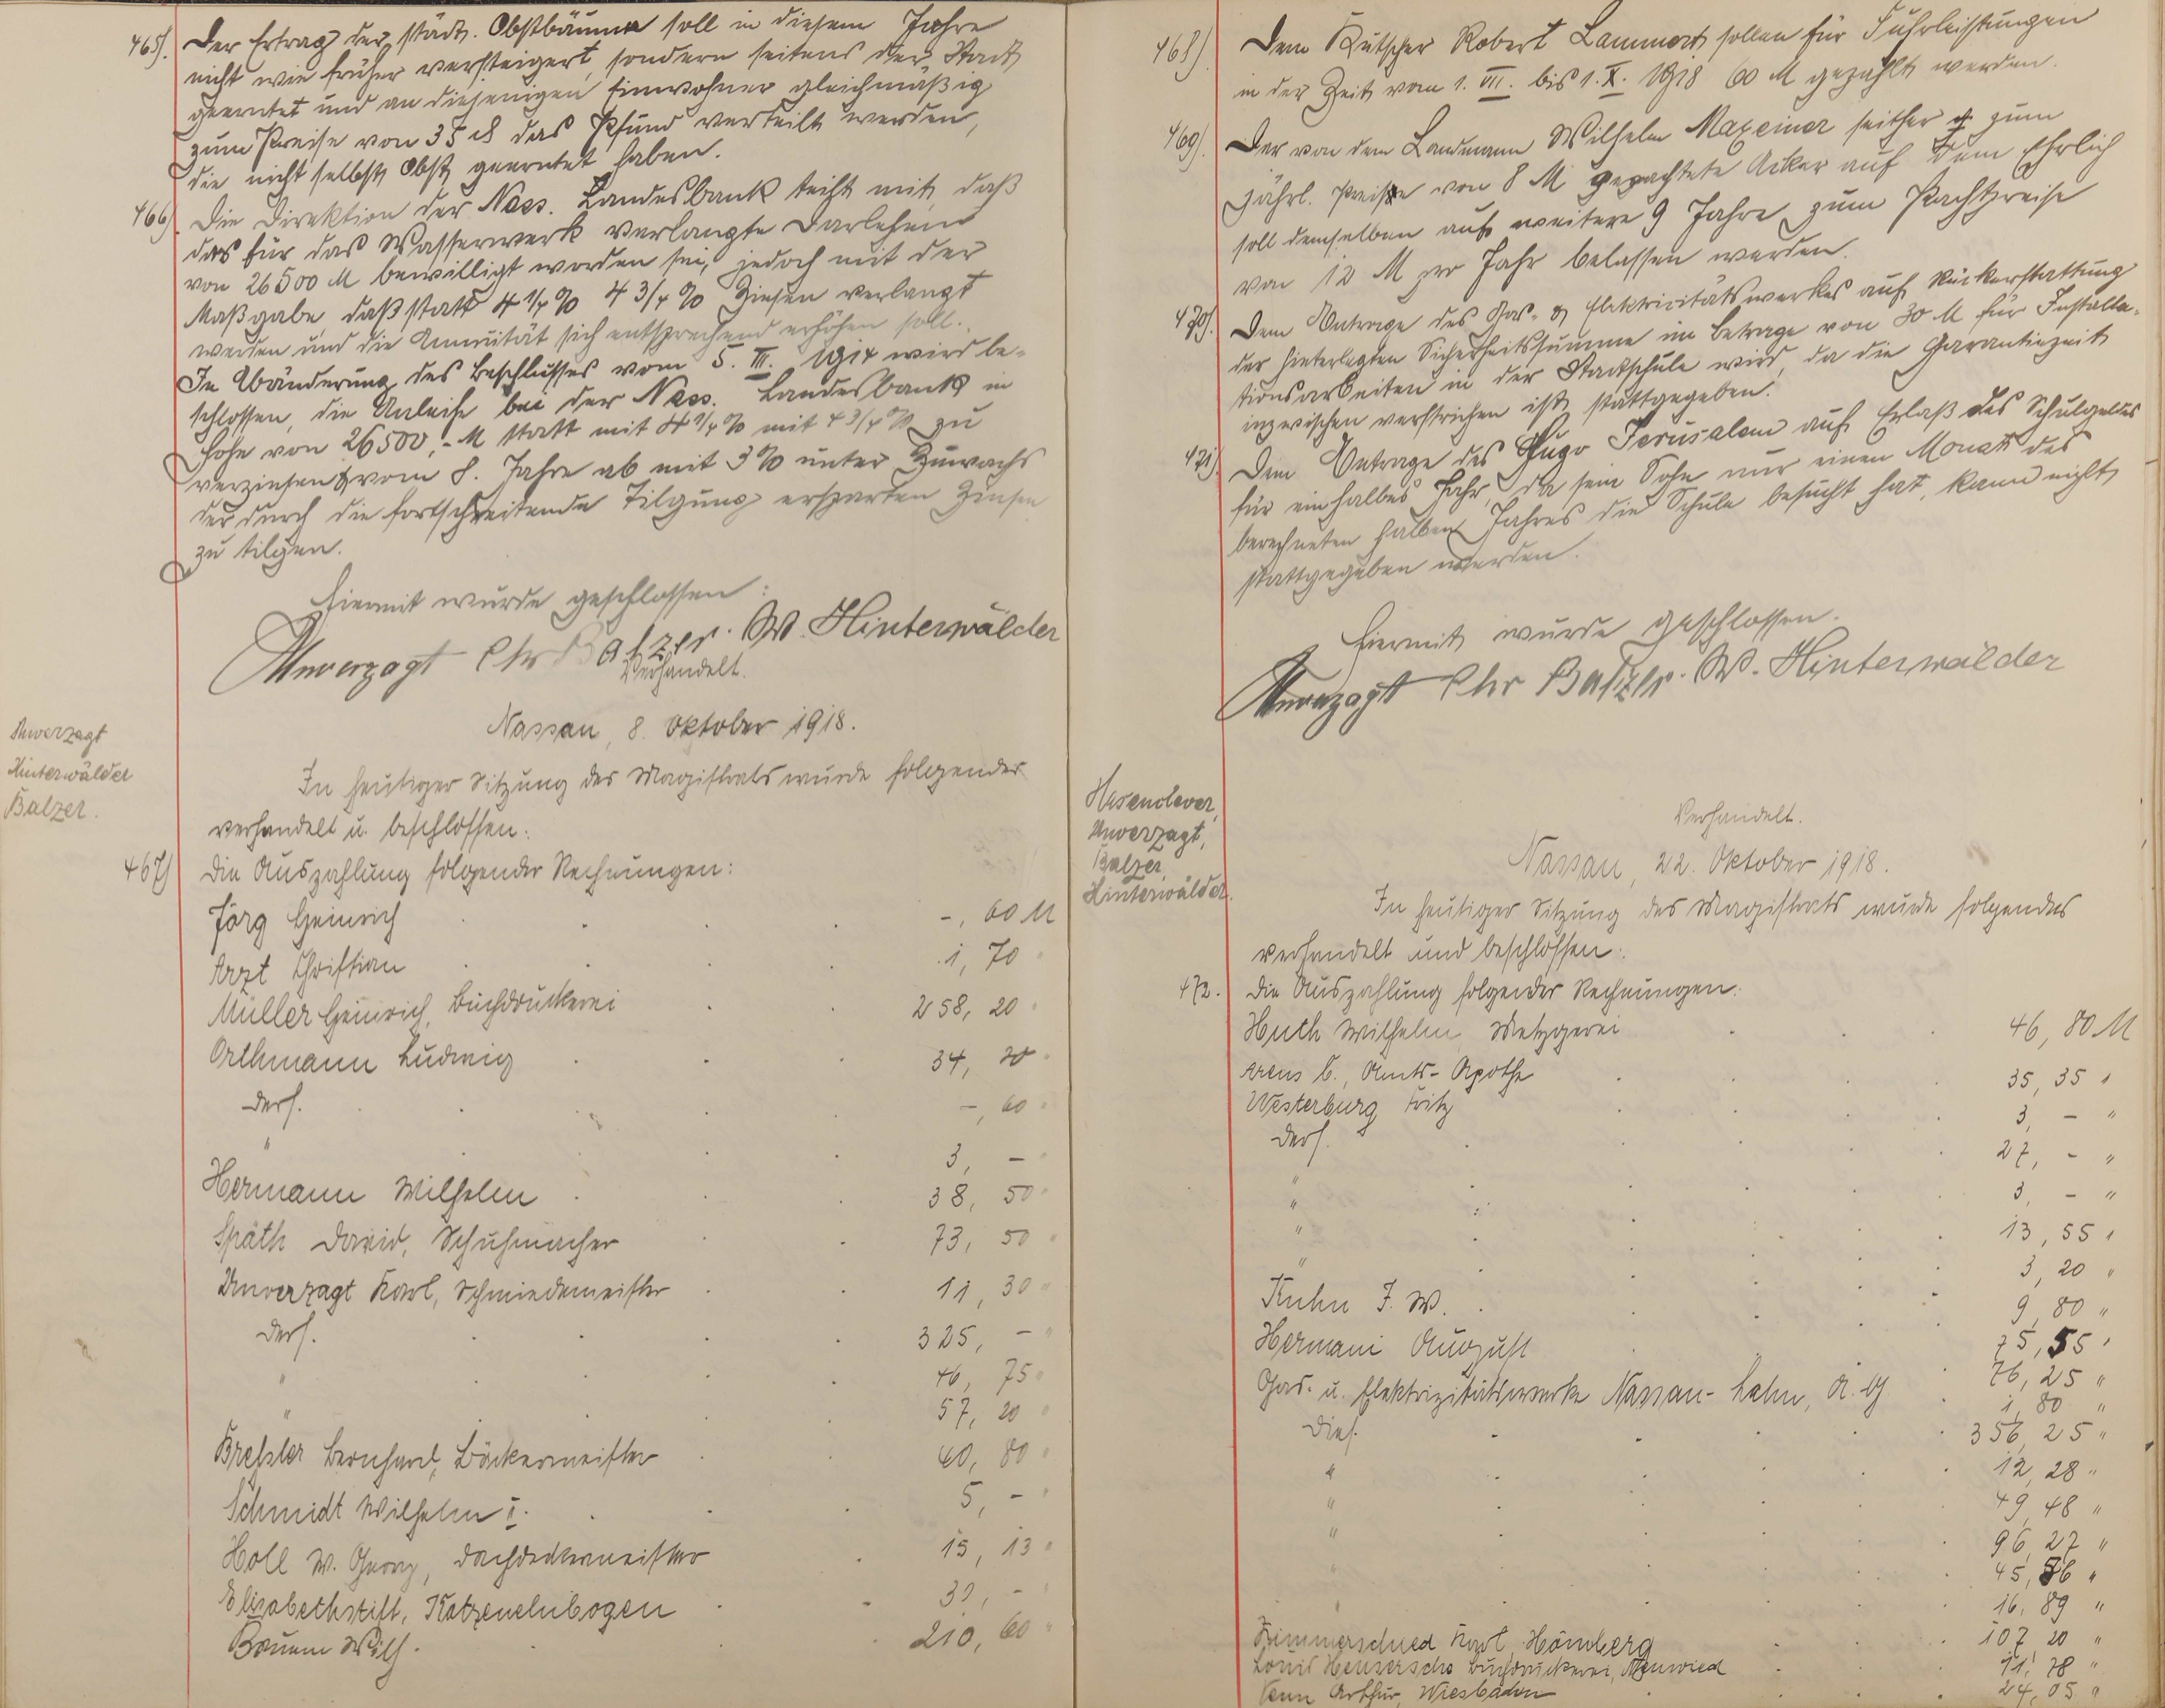 465). Der Ertrag der städt. Obstbäume soll in diesem Jahre
nicht wie früher versteigert, sondern seitens der Stadt
geerntet und an diejenigen Einwohner gleichmäßig
zum Preise von 35 ₰ das Pfund verteilt werden,
die nicht selbst Obst geerntet haben.
466). Die Direktion der Nass. Landesbank teilt mit, daß
das für das Wasserwerk verlangte Darlehen
von 26500 M bewilligt worden sei, jedoch mit der
Maßgabe, daß statt 4 1/4 % 4 3/4 % Zinsen verlangt
werden und die Annuität sich entsprechend erhöhen soll.
In Abänderung des Beschlusses vom 5. III. 1914 wird be-
schlossen, die Anleihe bei der Nass. Landesbank in
Höhe von 26500,- M statt mit 4 1/4 % mit 4 3/4 % zu
verzinsen & vom 8. Jahre ab mit 3 % unter Zuwachs
der durch die fortschreitende Tilgung ersparten Zinsen
zu tilgen.
Hiermit wurde geschlossen:
Unverzagt Chr Balzer. W. Hinterwälder
Verhandelt.
Nassau, 8. Oktober 1918.
Unverzagt
Hinterwälder
Balzer.
In heutiger Sitzung des Magistrats wurde folgender
verhandelt u. beschlossen:
467) Die Auszahlung folgender Rechnungen:
Jörg Heinrich -, 60 M
Arzt Christian 1, 70 "
Müller Heinrich, Buchdruckerei 258, 20 "
Orthmann Ludwig 34, 20 "
ders. -, 60 "
" 3, - "
Hermann Wilhelm 38, 50 "
Späth David, Schuhmacher 73, 50 "
Unverzagt Karl, Schmiedemeister 11, 30 "
ders. 325, - "
" 46, 75 "
" 57, 20 "
Bressler Bernhard, Bäckermeister 40, 80 "
Schmidt Wilhelm I. 5, - "
Holl W. Georg, Dachdeckermeister 15, 13 "
Elisabethstift, Katzenelnbogen 30, - "
Wilh. 210, 60 "
468). Dem Kutscher Robert Lammert sollen für Fuhrleistungen
in der Zeit vom 1. VII. bis 1. X. 1918 60 M gezahlt werden.
469). Der von dem Landmann Wilhelm Maxeiner seither zum
jährl. Preise von 8 M gepachtete Acker auf dem Ehrlich
soll demselben auf weitere 9 Jahre zum Pachtpreise
von 12 M pro Jahr belassen werden.
470). Dem Antrage des Gas- & Elektricitätswerkes auf Rückerstattung
der hinterlegten Sicherheitssumme im Betrage von 30 M für Installa-
tionsarbeiten in der Stadtschule wird, da die Garantiezeit
inzwischen verstrichen ist, stattgegeben.
471). Dem Antrage des Hugo Jerusalem auf Erlaß des Schulgeldes
für ein halbes Jahr, da sein Sohn nur einen Monat des
berechneten halben Jahres die Schule besucht hat, kann nicht
stattgegeben werden.
Hiermit wurde geschlossen.
Unverzagt Chr Balzer. W. Hinterwälder
Hasenclever,
Unverzagt,
Balzer,
Hinterwälder.
Verhandelt.
Nassau, 22. Oktober 1918.
In heutiger Sitzung des Magistrats wurde folgendes
verhandelt und beschlossen:
472. Die Auszahlung folgender Rechnungen:
Huth Wilhelm, Metzgerei 46, 80 M
Arens C., Amts-Apothe 35, 35 "
Westerburg Fritz 3, - "
ders. 27, - "
" 3, - "
" 13, 55 "
" 3, 20 "
Kuhn F. W. 9, 80 "
Hermani August 75, 55 "
Gas- u. Elektrizitätswerke Nassau-Lahn, A.G 76, 25 "
dies. 1, 80 "
" 356, 25 "
" 12, 28 "
" 49, 48 "
" 96, 27 "
" 45, 86 "
16, 89 "
Zimmerschied Karl, Hömberg 107, 20 "
Louis Heusersche Buchdruckerei, Neuwied 71, 78 "
Arthur, Wiesbaden 24, 05 "